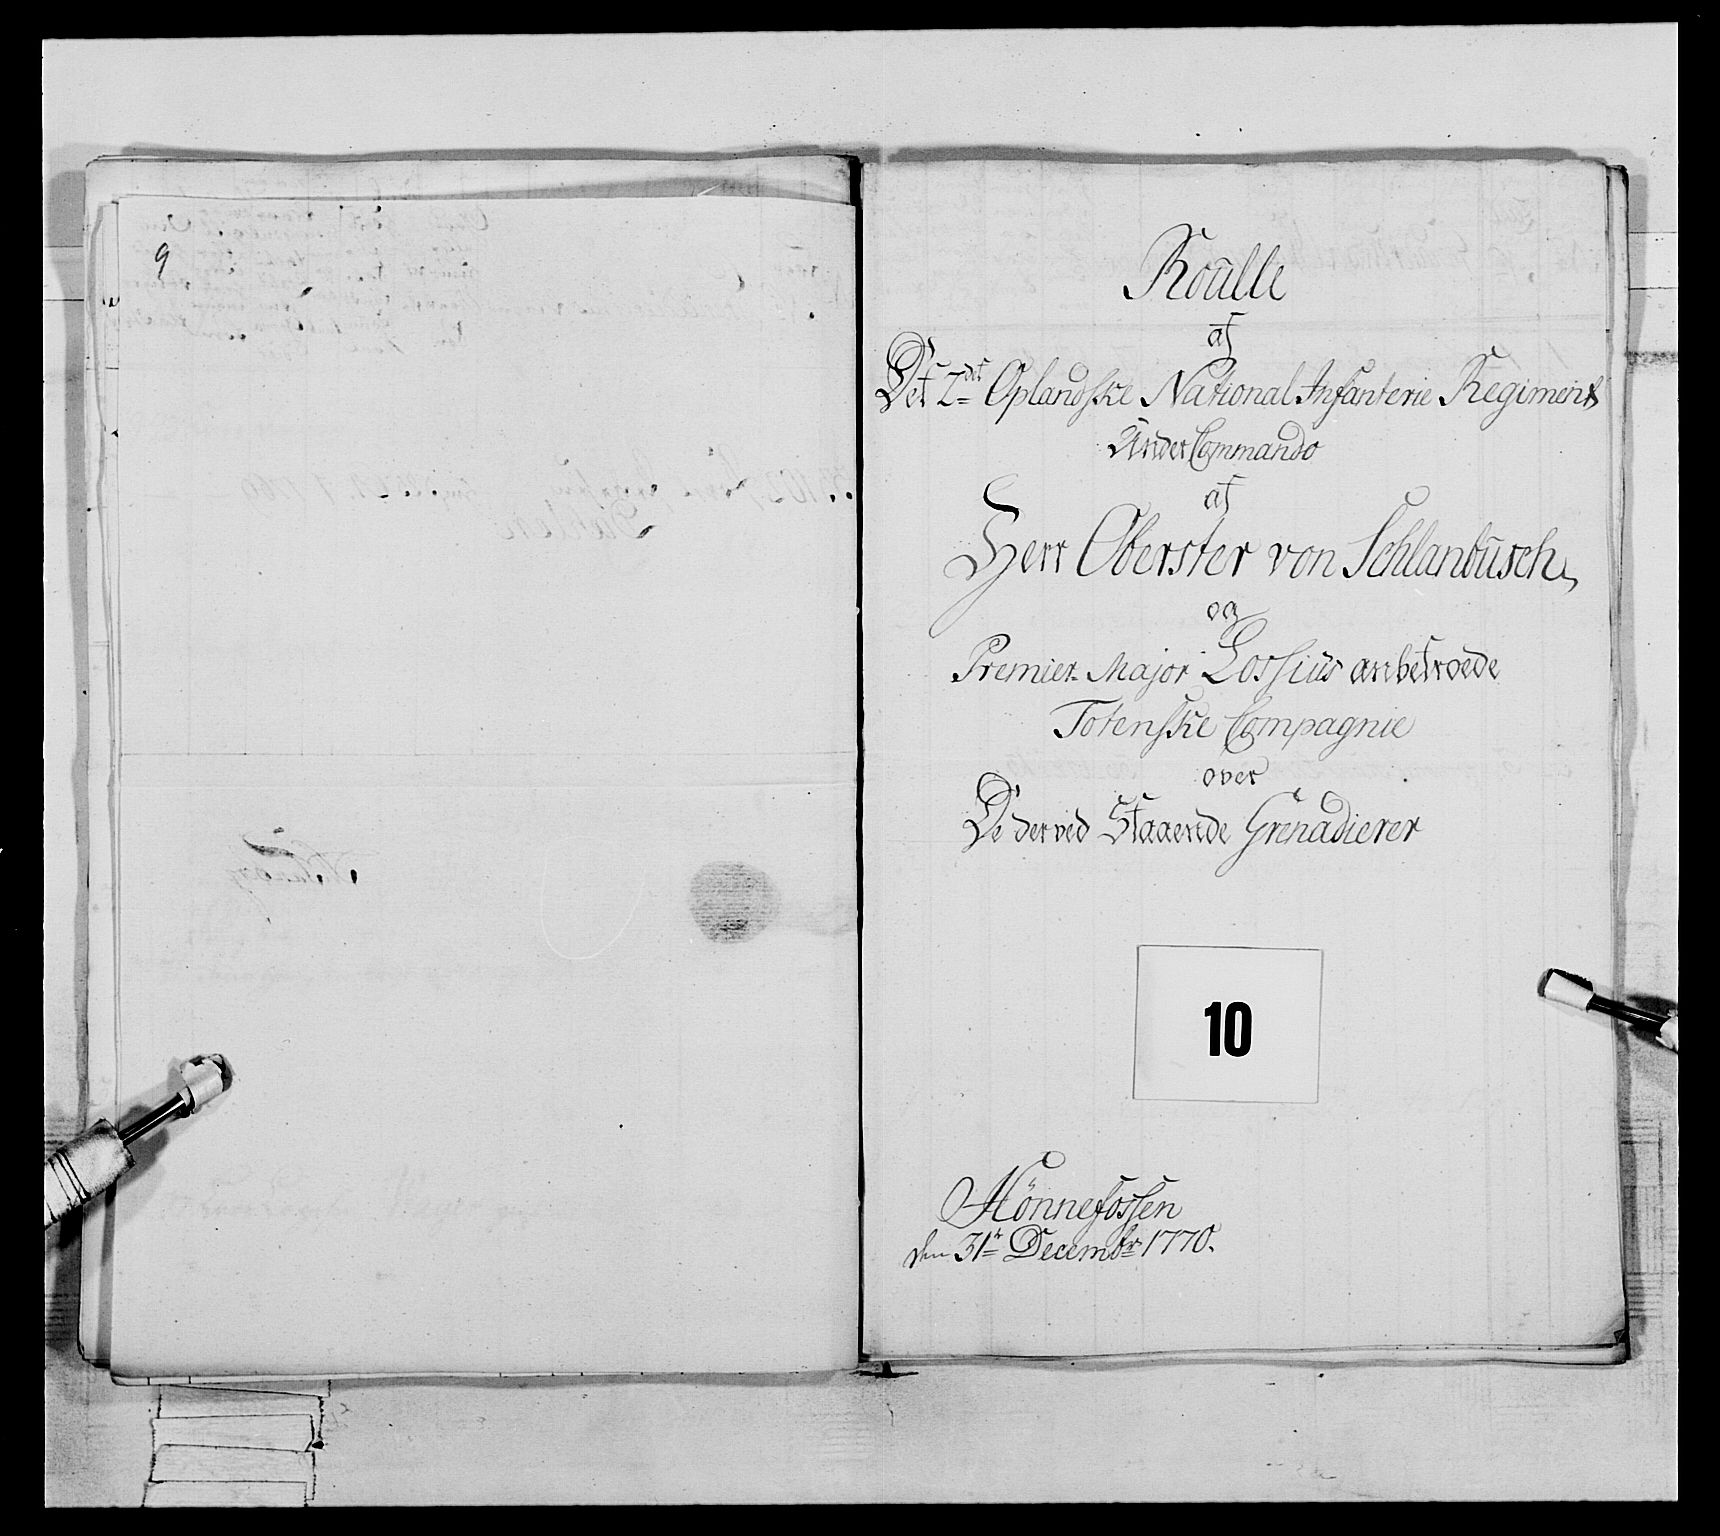 9
Roulle
af
Det 2det Oplandske National Infanterie Regiment
Under Commando
af
Herr Oberster von Schlanbusch,
og
Premier Major Lossius anbetroede
Totenske Compagnie
over
De derved Staaende Grenadierer
10
Hönnefossen
den 31te Decembr 1770.